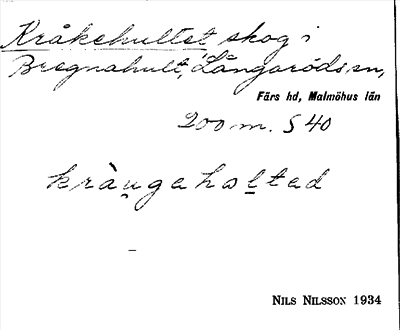 Kråkehultet skog i
Bregnahult, Långaröds sn,
Färs hd, Malmöhus län
200 m. S 40
kràu̯gahol̠tad
–
NILS NILSSON 1934